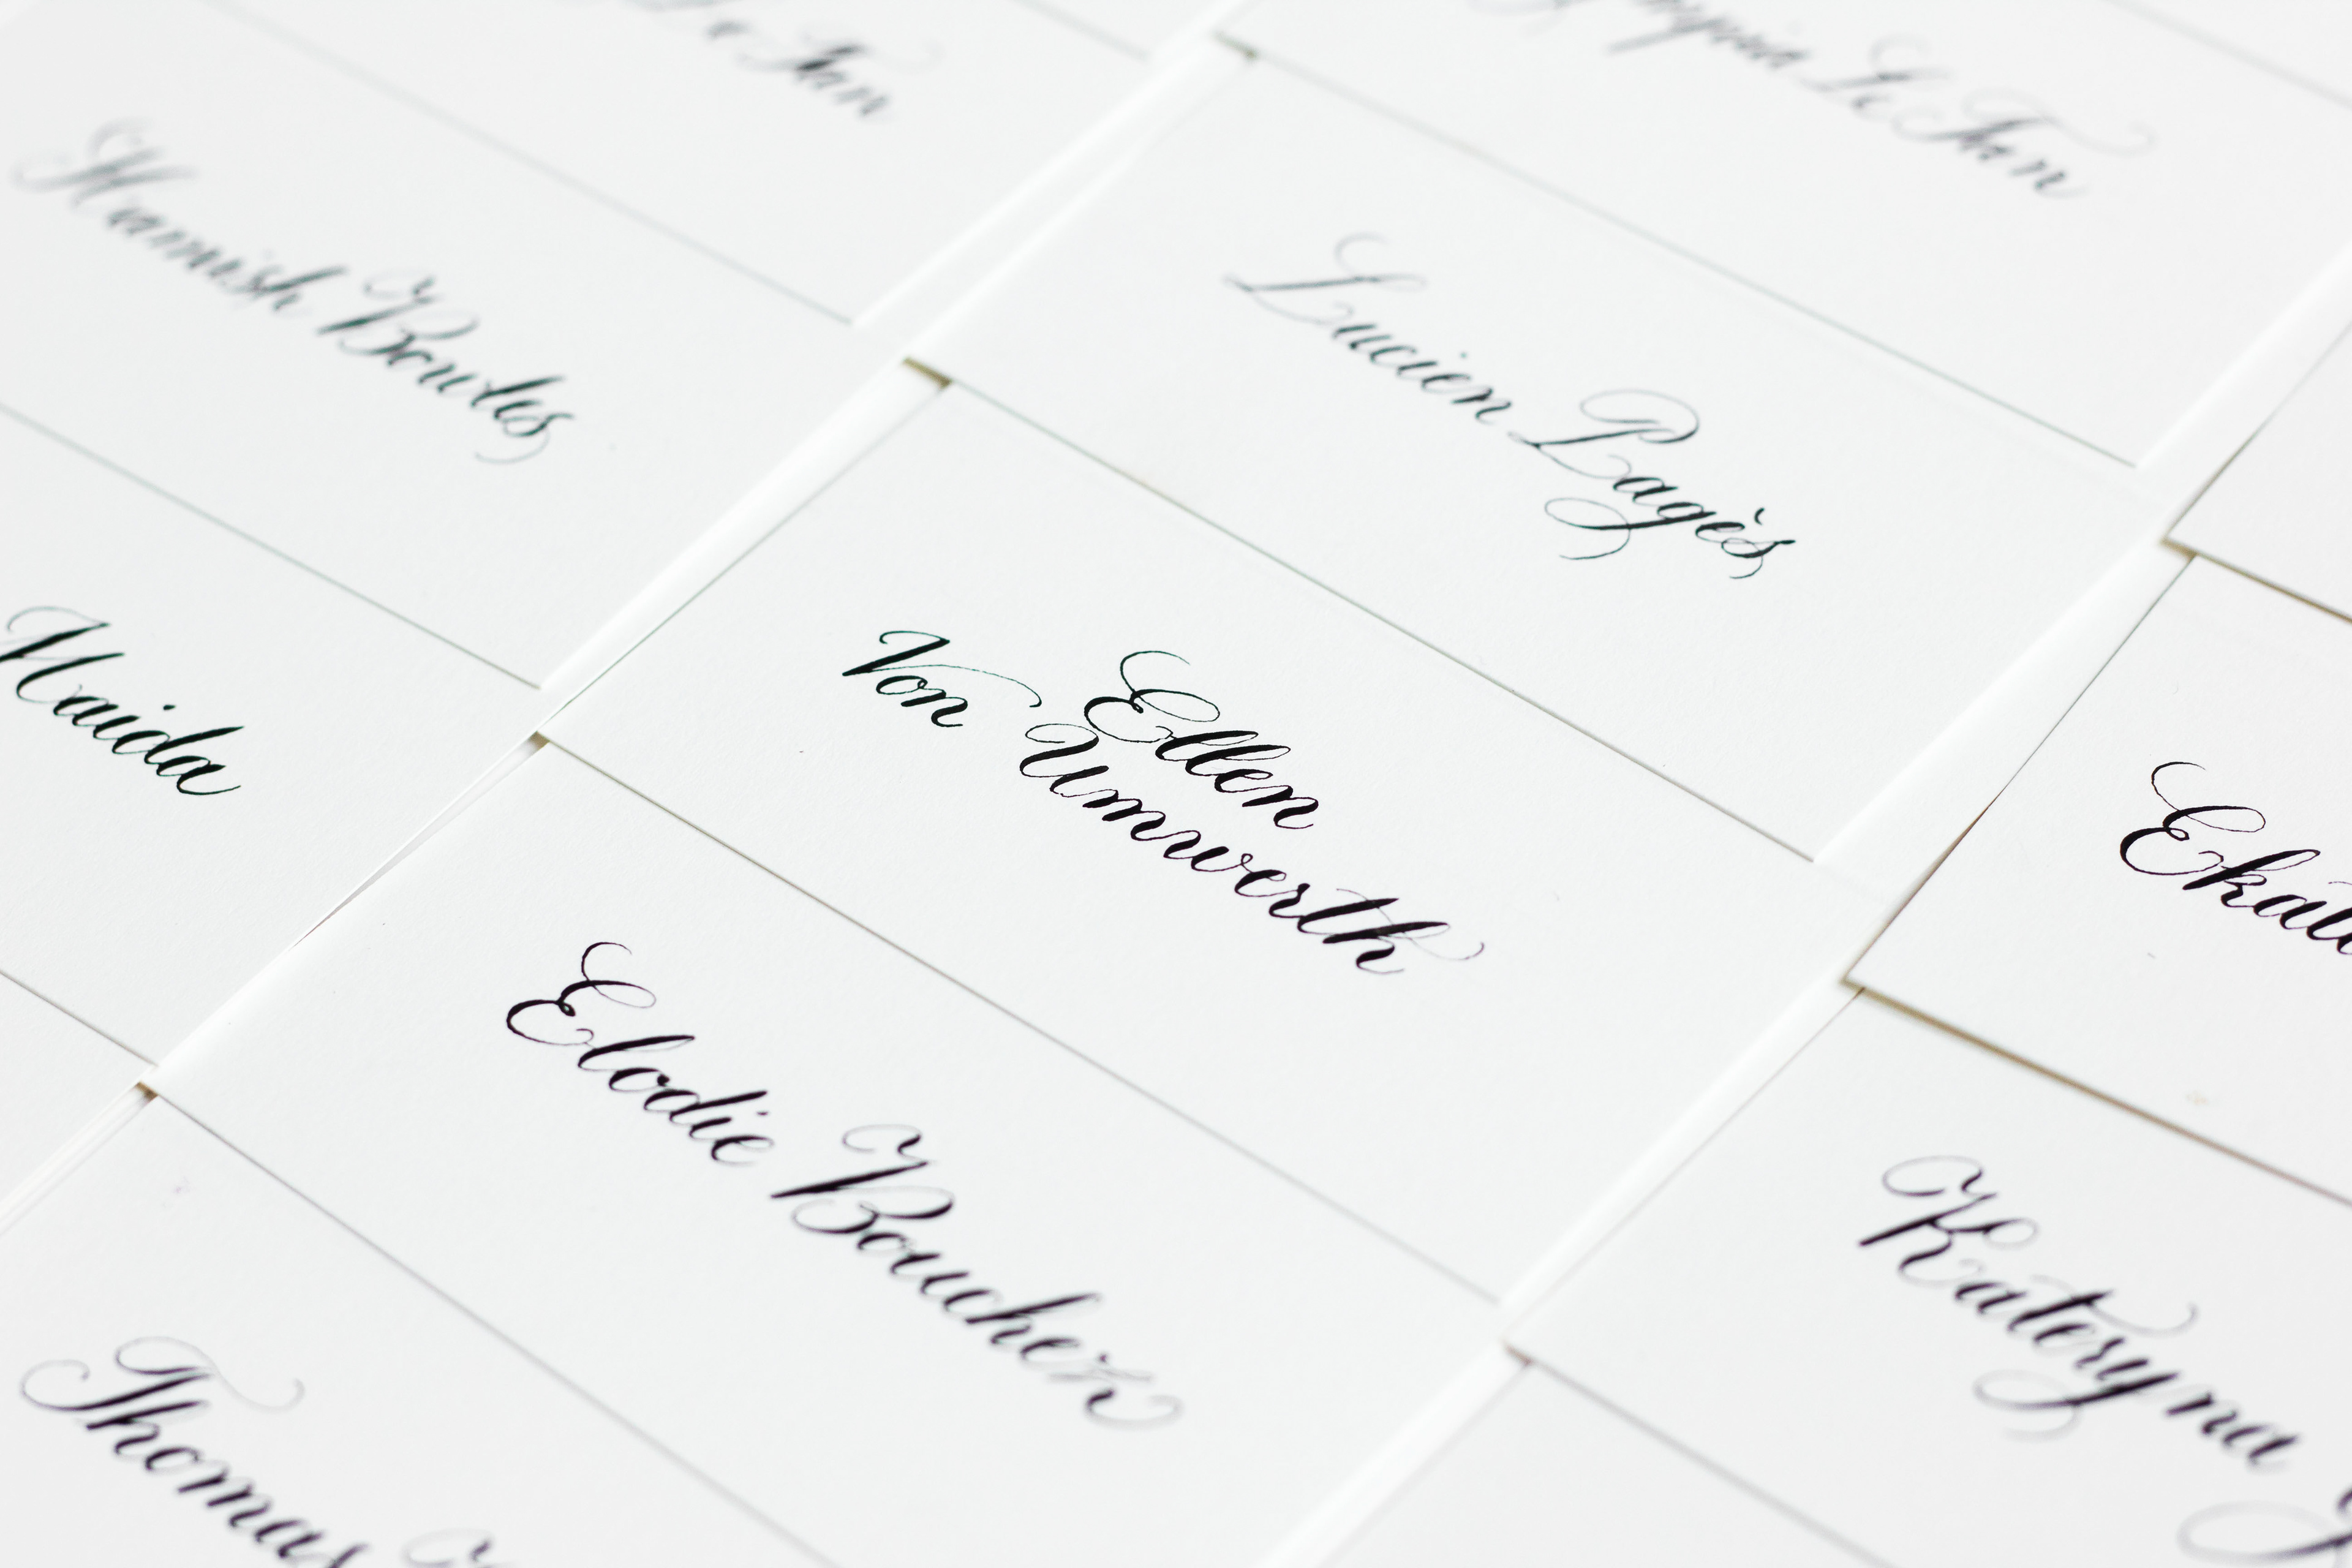 Le Tan
Le Tan
Hamish Bowles
Lucien Pagès
Naida
Ellen
Von Unwerth
Elodie Bouchez
Kateryna
Thomas